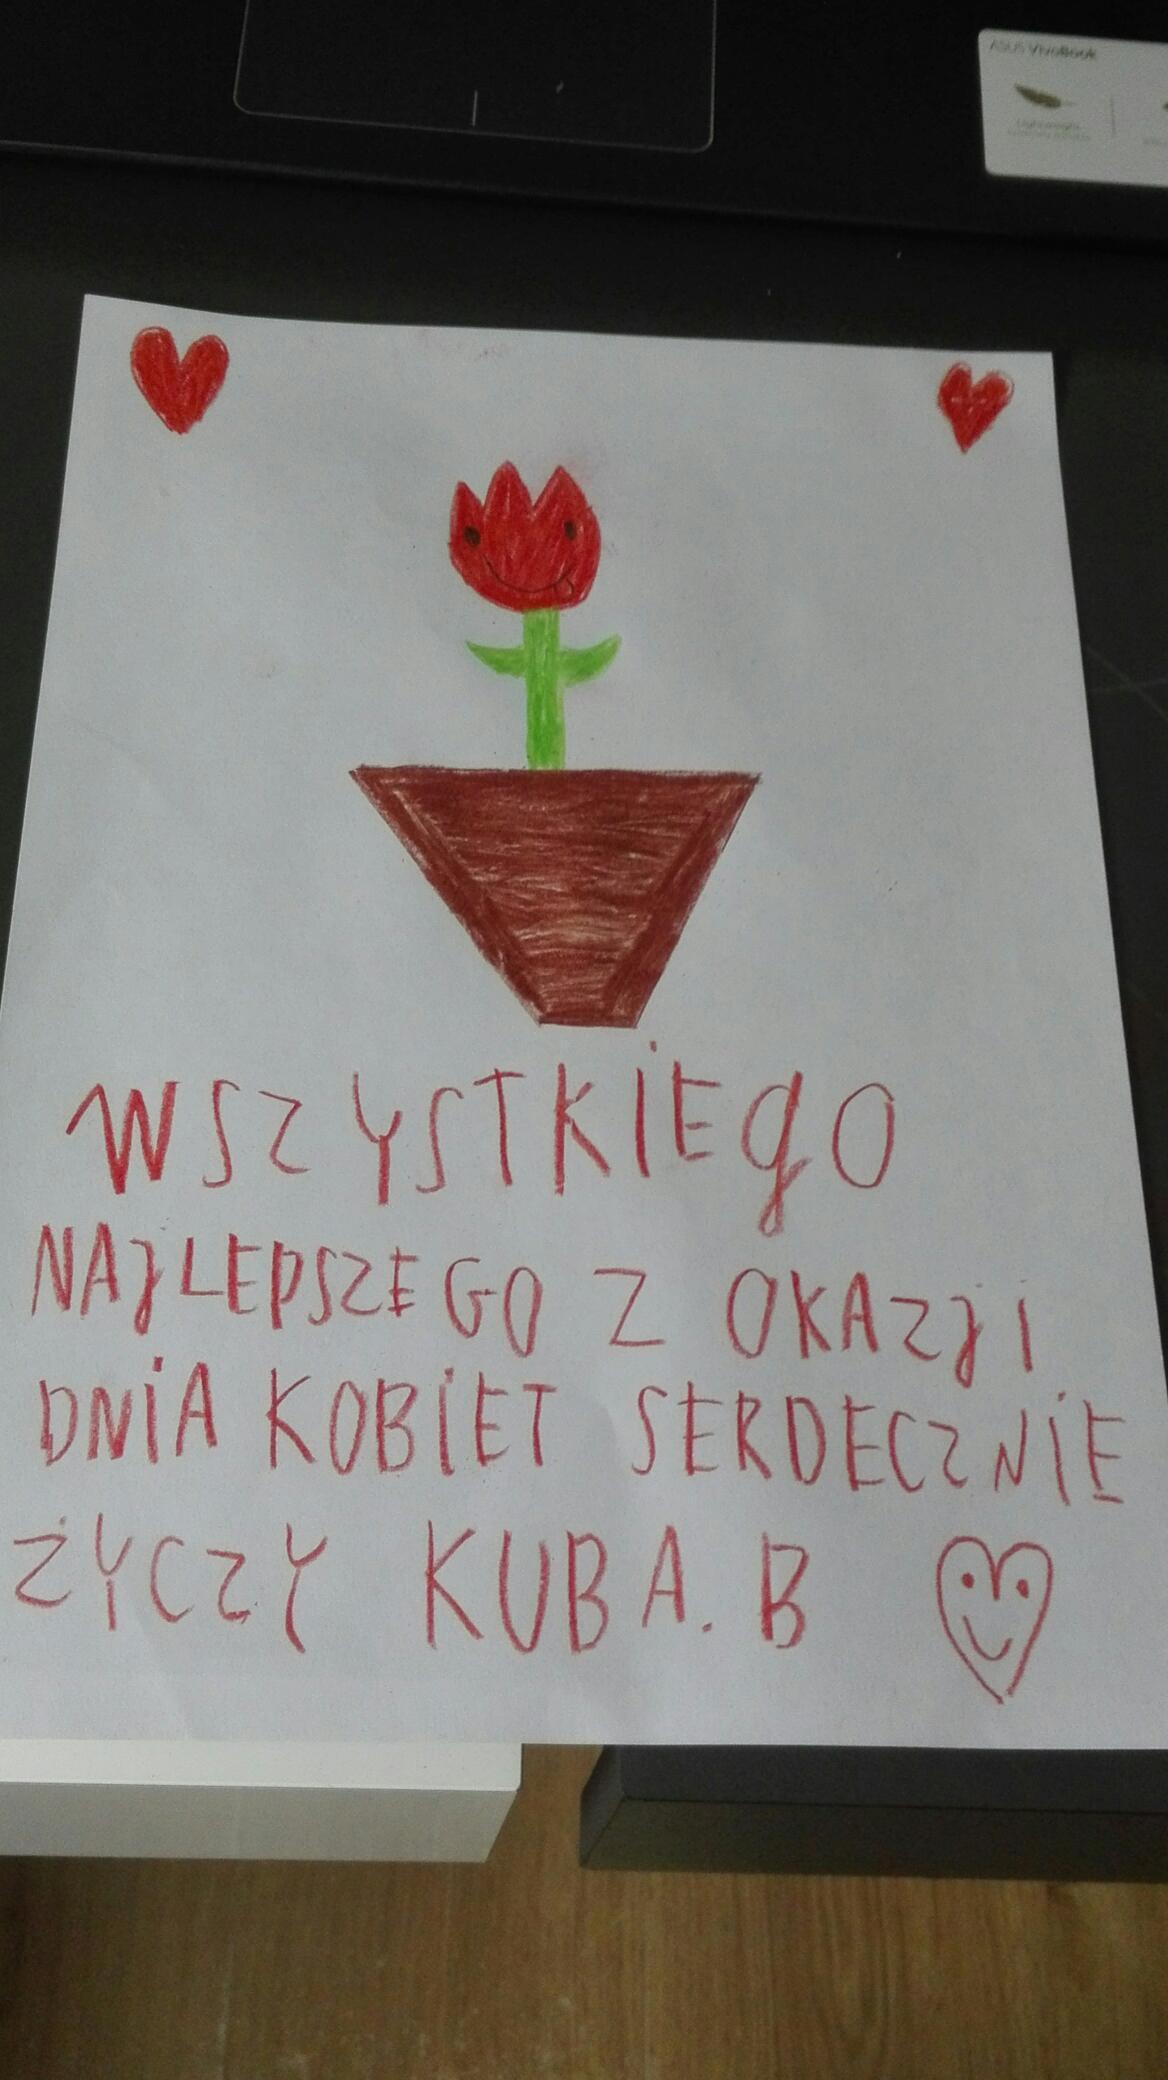 ASUS VivoBook
Lightweight
WSZYSTKIEgO
NAJLEPSZEGO Z OKAZJI
DNiA KOBiET SERDECZNiE
ŻYCZY KUBA. B